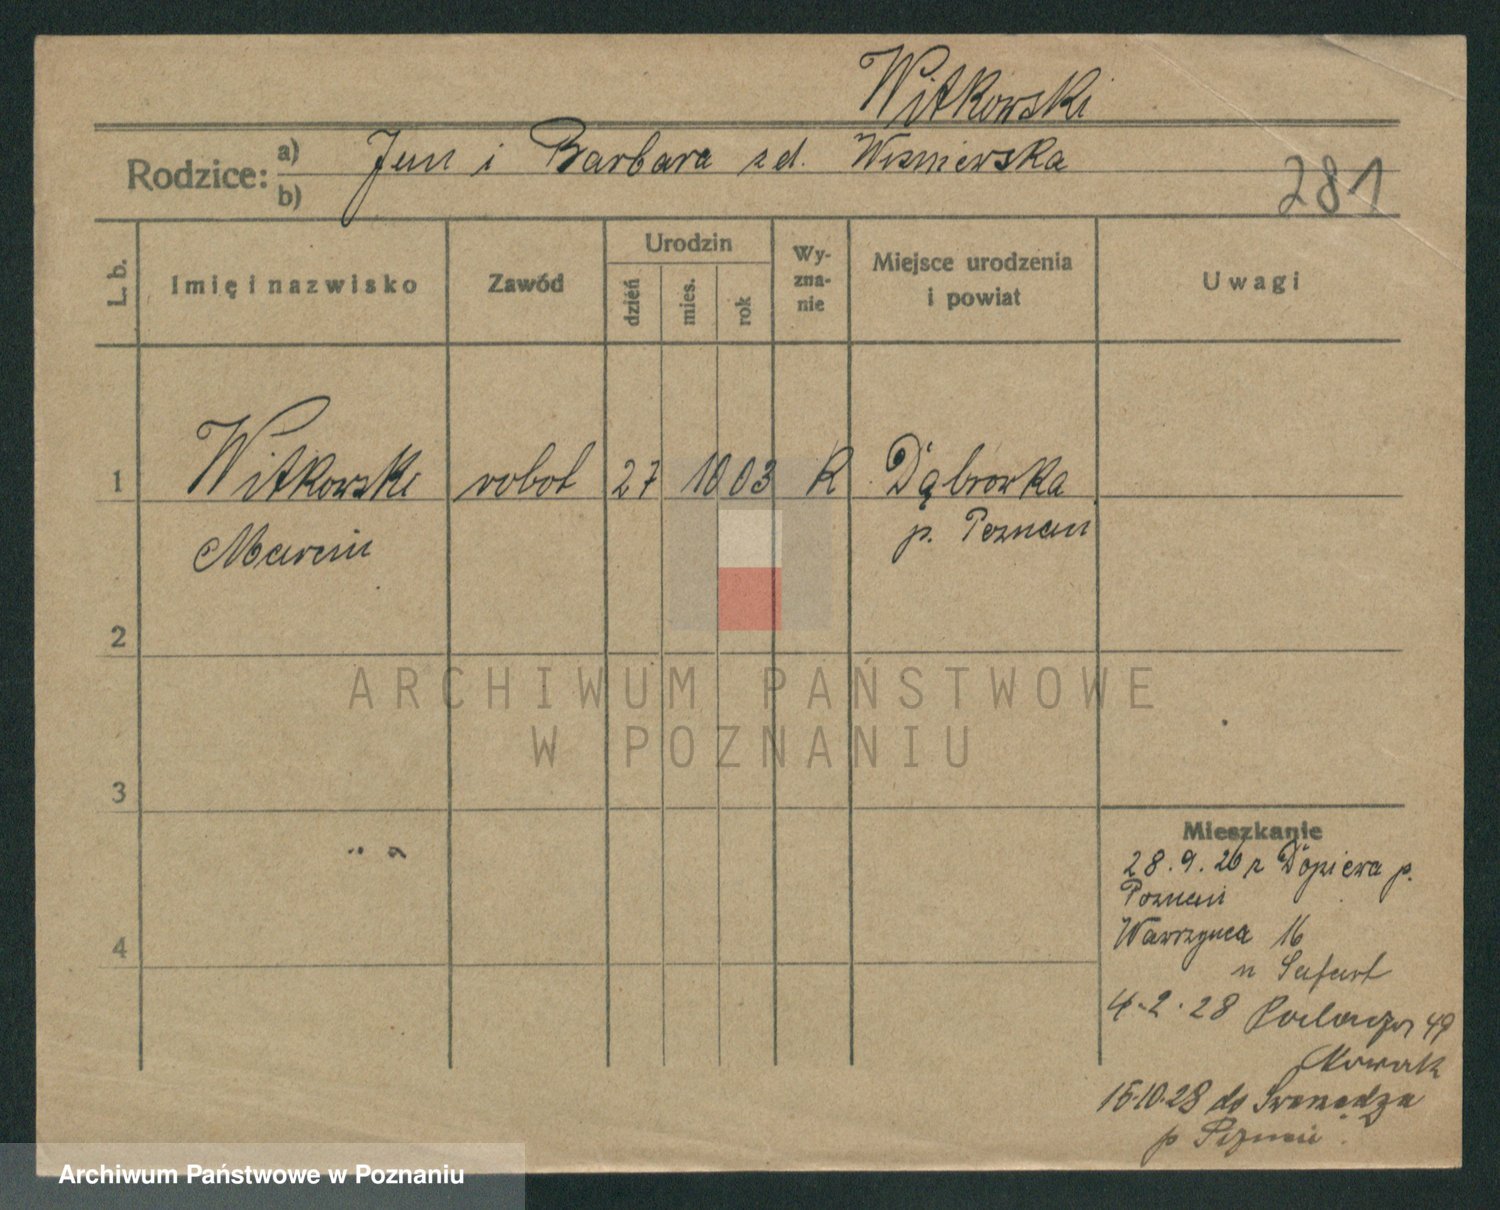 Witkowski
Rodzice: a) Jan i Barbara zd. Wiśniewska
b)
281
L. b.
Imię i nazwisko
Zawód
Urodzin
dzień
mies.
rok
Wy-
zna-
nie
Miejsce urodzenia
i powiat
Uwagi
1 Witkowski robot 27 10 03 R Dąbrowka
Marcin p. Poznań
2
ARCHIWUM PAŃSTWOWE
W POZNANIU
3
Mieszkanie
28.9.26 z Dopiewa p.
Poznań
Wawrzynca 16
4
4.2.28 49
Nowak
15.10.28 do
p Poznań.
Archiwum Państwowe w Poznaniu